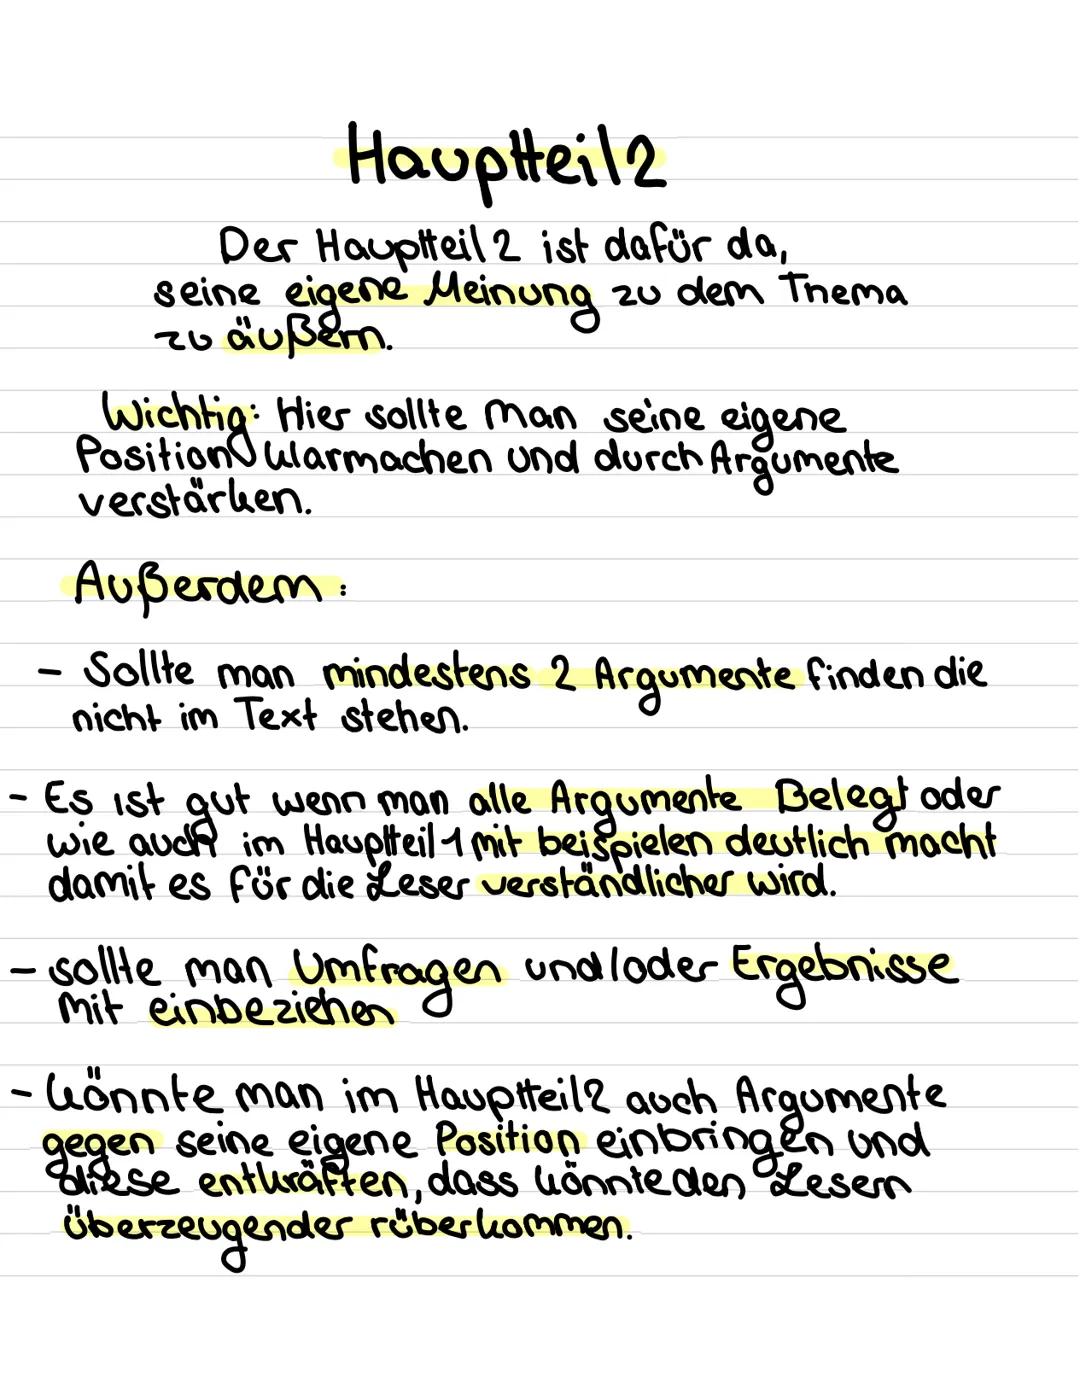 Hauptteil 2
Der Hauptteil 2 ist dafür da,
seine eigene Meinung zu dem Thema
zu äußern.
Wichtig: Hier sollte man seine eigene
Position klarmachen und durch Argumente
verstärken.
Außerdem:
- Sollte man mindestens 2 Argumente finden die
nicht im Text stehen.
- Es ist gut wenn man alle Argumente Belegt oder
wie auch im Hauptteil 1 mit beispielen deutlich macht
damit es für die Leser verständlicher wird.
- sollte man Umfragen und/oder Ergebnisse
mit einbeziehen
- könnte man im Hauptteil 2 auch Argumente
gegen seine eigene Position einbringen und
diese entkräften, dass könnte den Lesern
überzeugender rüberkommen.